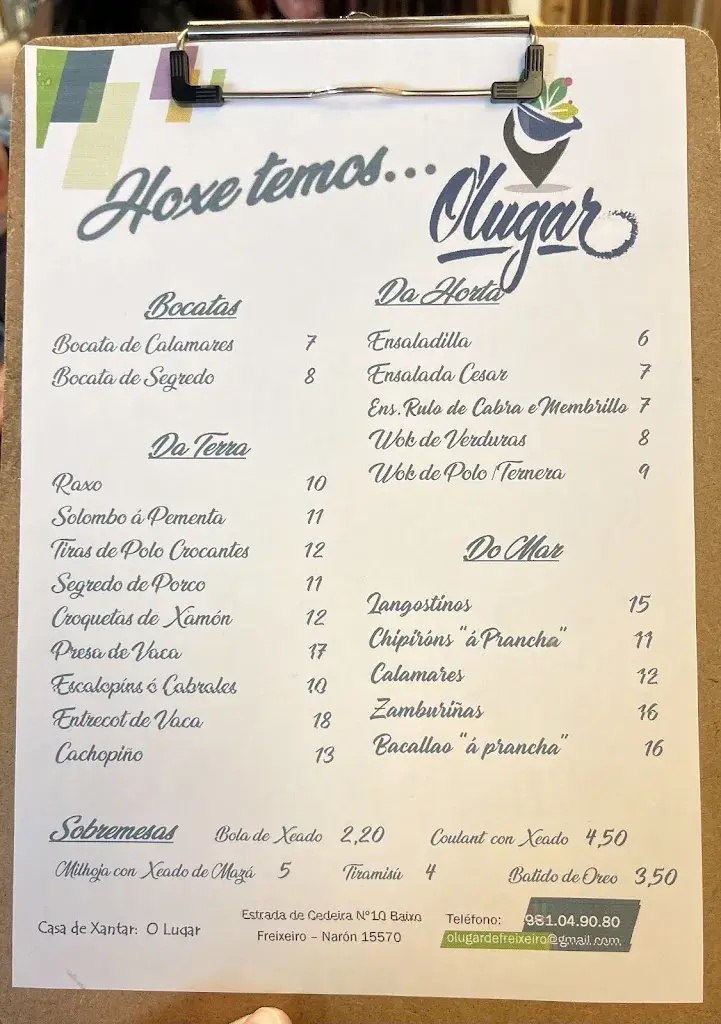 Hoxe temos...
O'lugar
Bocatas
Bocata de Calamares 7
Bocata de Segredo 8
Da Terra
Raxo 10
Solombo á Pementa 11
Tiras de Polo Crocantes 12
Segredo de Porco 11
Croquetas de Xamón 12
Presa de Vaca 17
Escalopíns ó Cabrales 10
Entrecot de Vaca 18
Cachopiño 13
Da Horta
Ensaladilla 6
Ensalada Cesar 7
Ens. Rulo de Cabra e Membrillo 7
Wok de Verduras 8
Wok de Polo /Ternera 9
Do Mar
Langostinos 15
Chipiróns "á Prancha" 11
Calamares 12
Zamburiñas 16
Bacallao "á prancha" 16
Sobremesas Bola de Xeado 2,20 Coulant con Xeado 4,50
Milhoja con Xeado de Mazá 5 Tiramisú 4 Batido de Oreo 3,50
Casa de Xantar: O Lugar
Estrada de Cedeira Nº10 Baixo
Freixeiro – Narón 15570
Teléfono: 981.04.90.80
olugardefreixeiro@gmail.com